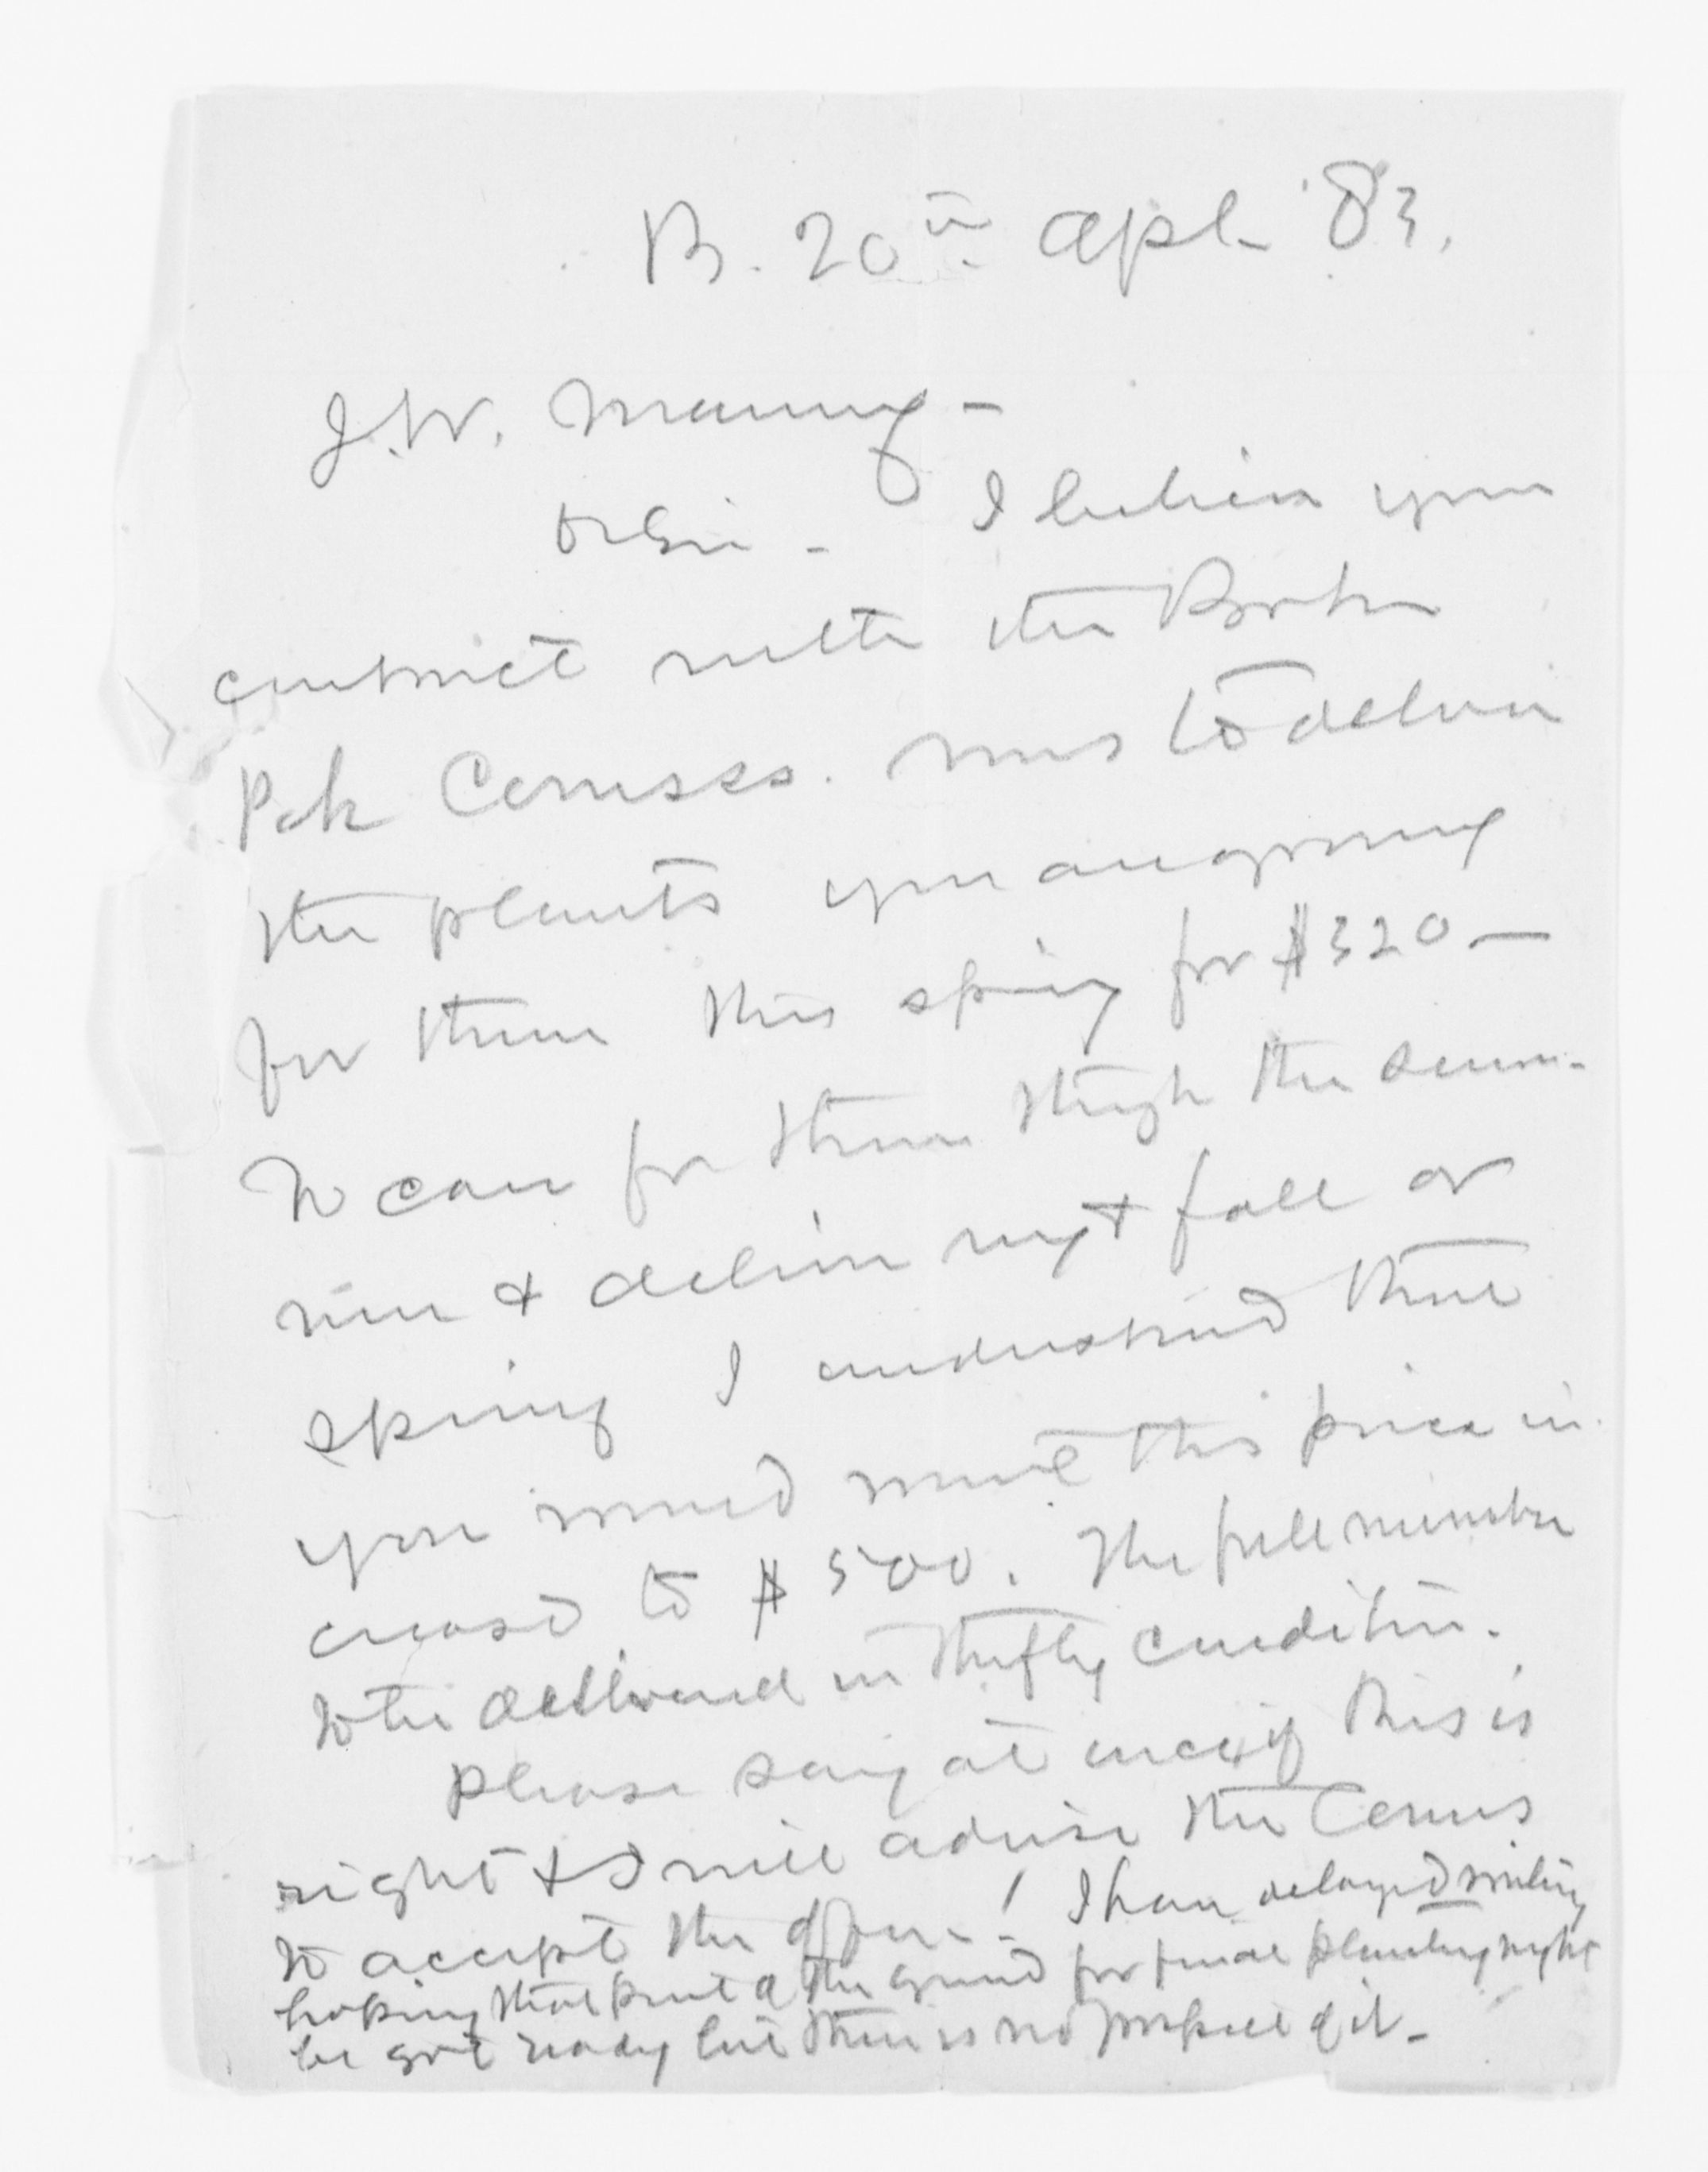 B. 20th Apl. '83.
J. W. Manning -
Dr Sir - I believe your
contract with the Boston
Park Comssrs. was to deliver
the plants you are growing
for them this spring for $320 —
To care for them th'gh the sum-
mer & deliver next fall or
spring I understand that
you would want this price in
creased to $500. The full number
to be delivered in thrifty condition.
Please say at once if this is
right & I will advise the Comrs
to accept the offer. I have delayed writing
hoping that part of the ground for final planting might
be got ready but there is no prospect of it -